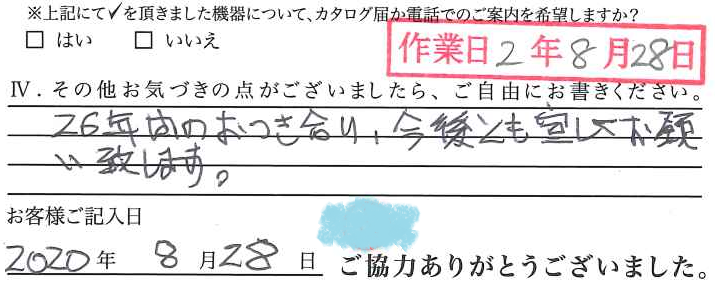 ※上記にて✓を頂きました機器について、カタログ届か電話でのご案内を希望しますか？
□ はい □ いいえ
作業日 2年8月28日
Ⅳ．その他お気づきの点がございましたら、ご自由にお書きください。
26年間のおつき合り、今後とも宜しくお願
い致します。
お客様ご記入日
2020年 8月28日
ご協力ありがとうございました。